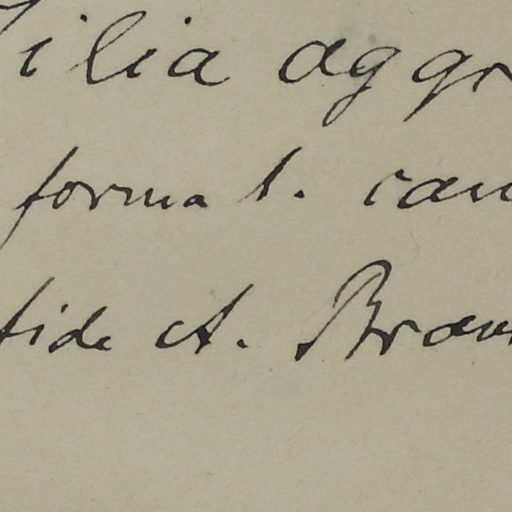 Tilia aggr
forma b. cau
fide A. Brau